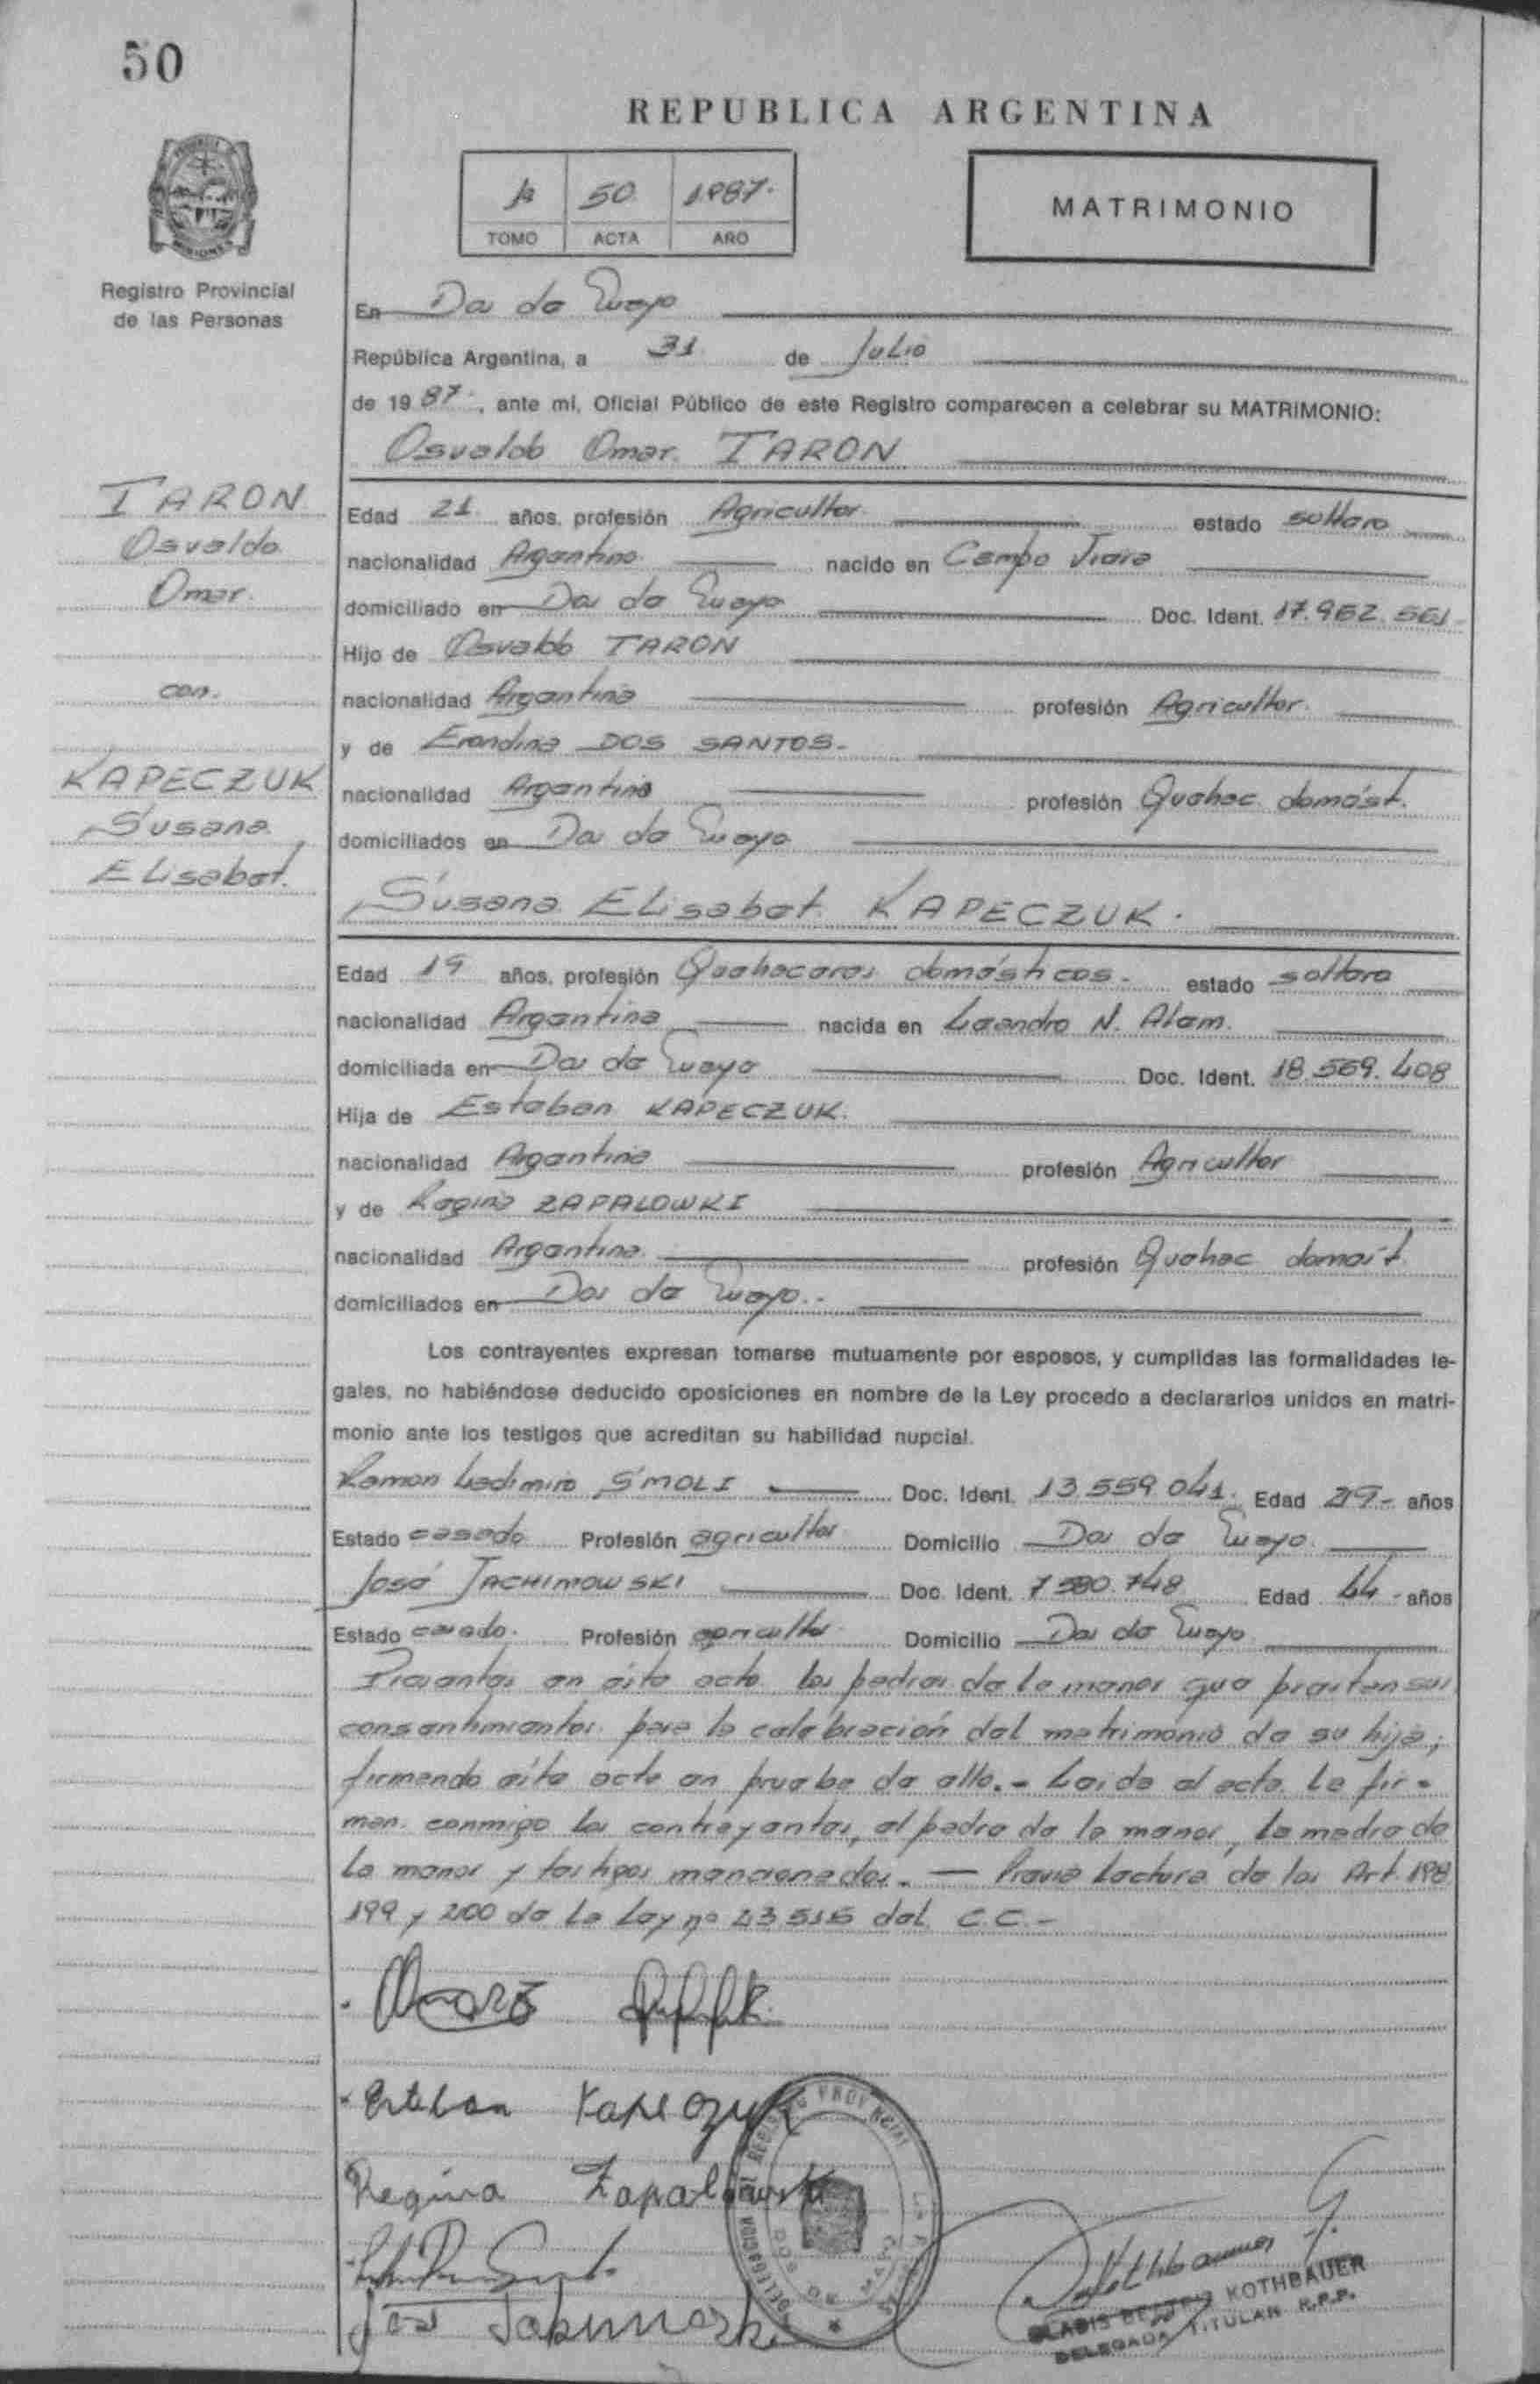 50
REPUBLICA ARGENTINA
1º 50 1987.
TOMO ACTA AÑO
MATRIMONIO
Registro Provincial
de las Personas
En Dos de Mayo
República Argentina, a 31 de Julio
de 1987, ante mi, Oficial Público de este Registro comparecen a celebrar su MATRIMONIO:
Osvaldo Omar TARON
TARON
Osvaldo
Omar.
con.
KAPECZUK
Susana
Elisabet.
Edad 21 años, profesión Agricultor estado soltero
nacionalidad Argentino nacido en Campo Viera
domiciliado en Dos de Mayo Doc. Ident. 17.952.561
Hijo de Osvaldo TARON
nacionalidad Argentina profesión Agricultor.
y de Erondina DOS SANTOS.-
nacionalidad Argentina profesión Quehac. domést.
domiciliados en Dos de Mayo
Susana Elisabet KAPECZUK.
Edad 19 años, profesión Quehaceres domésticos.- estado soltera
nacionalidad Argentina nacida en Leandro N. Alem.
domiciliada en Dos de Mayo Doc. Ident. 18.569.408
Hija de Esteban KAPECZUK.
nacionalidad Argentina profesión Agricultor
y de Regina ZAPALOWKI
nacionalidad Argentina. profesión Quehac domést.
domiciliados en Dos de Mayo.-
Los contrayentes expresan tomarse mutuamente por esposos, y cumplidas las formalidades le-
gales, no habiéndose deducido oposiciones en nombre de la Ley procedo a declararlos unidos en matri-
monio ante los testigos que acreditan su habilidad nupcial.
Ramon Ladimiro SMOLI Doc. Ident. 13.559.041. Edad 29- años
Estado casado Profesión agricultor Domicilio Dos de Mayo.
José JACHIMOWSKI Doc. Ident. 7.580.748 Edad 44- años
Estado casado. Profesión agricultor Domicilio Dos de Mayo
Presentes en éste acto los padres de la menor que prestan sus
consentimientos para la celebración del matrimonio de su hija;
firmando éste acto en prueba de ello.- Leída el acta la fir-
man conmigo los contrayentes, el padre de la menor, la madre de
la menor y testigos mencionados.- Previa lectura de los Art. 198
199 y 200 de la Ley nº 23.515 del C.C.-
Esteban Kapeczuk
Regina Zapalowski
José
DELEGACION DEL REGISTRO PROVINCIAL
DOS DE MAYO
GLADIS BEATRIZ KOTHBAUER
DELEGADA TITULAR R.P.P.